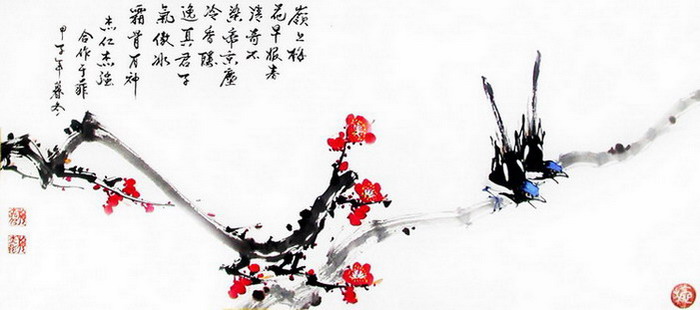 嶺上梅
花早報春
清奇不
染帝京塵
冷香隱
逸真君子
氣傲冰
霜骨有神
杰仁杰強
合作于菲
甲子年暮冬